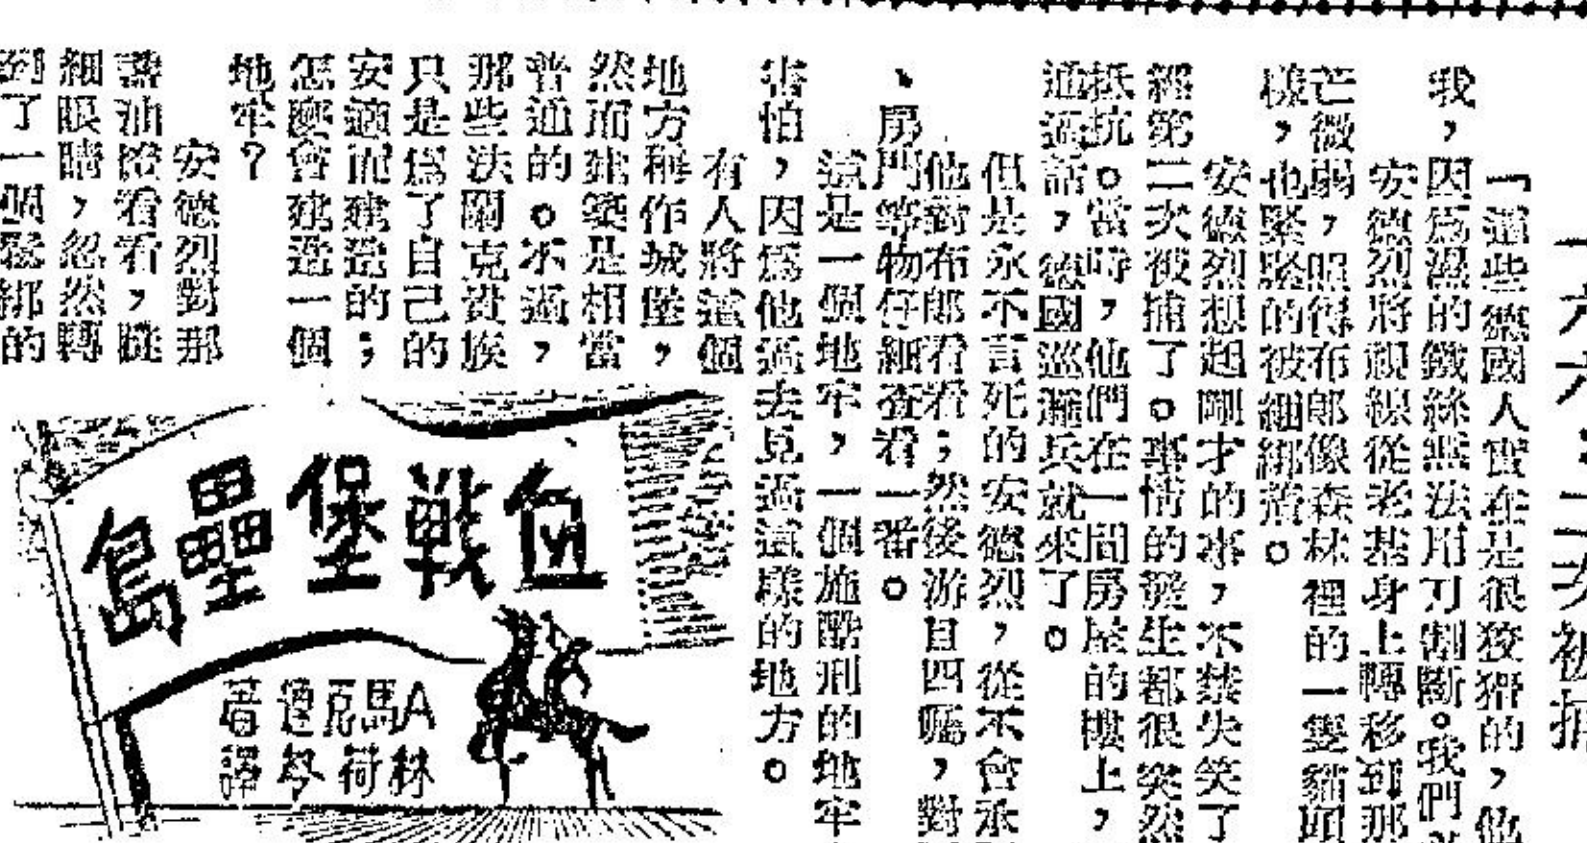 一六六：二次被捕
「這些德國人實在是很狡猾的，他
我，因爲濕的鐵絲無法用刀割斷。我們
安德烈將視線從老基身上轉移到那
芒微弱，照得布郎像森林裡的一隻貓頭
樣，也緊緊的被綑綁著。
安德烈想起剛才的事，不禁失笑了
經第二次被捕了。事情的發生都很突然
抵抗。當時，他們在一間房屋的樓上，
通過話，德國巡邏兵就來了。
但是永不言死的安德烈，從不會承
他對布郎看看；然後游目四矚，對
、房門等物仔細查看一番。
這是一個地牢，一個施酷刑的地牢
害怕，因爲他過去見過這樣的地方。
有人將這個
地方稱作城堡，
然而建築是相當
普通的。不過，
那些法關克貴族
只是爲了自己的
安適而建造的；
怎麼會建造一個
地牢？
安德烈對那
盞油燈看看，瞇
細眼睛，忽然轉
到了一個鬆綁的
血戰堡壘島
A馬克邁著
林荷琴譯